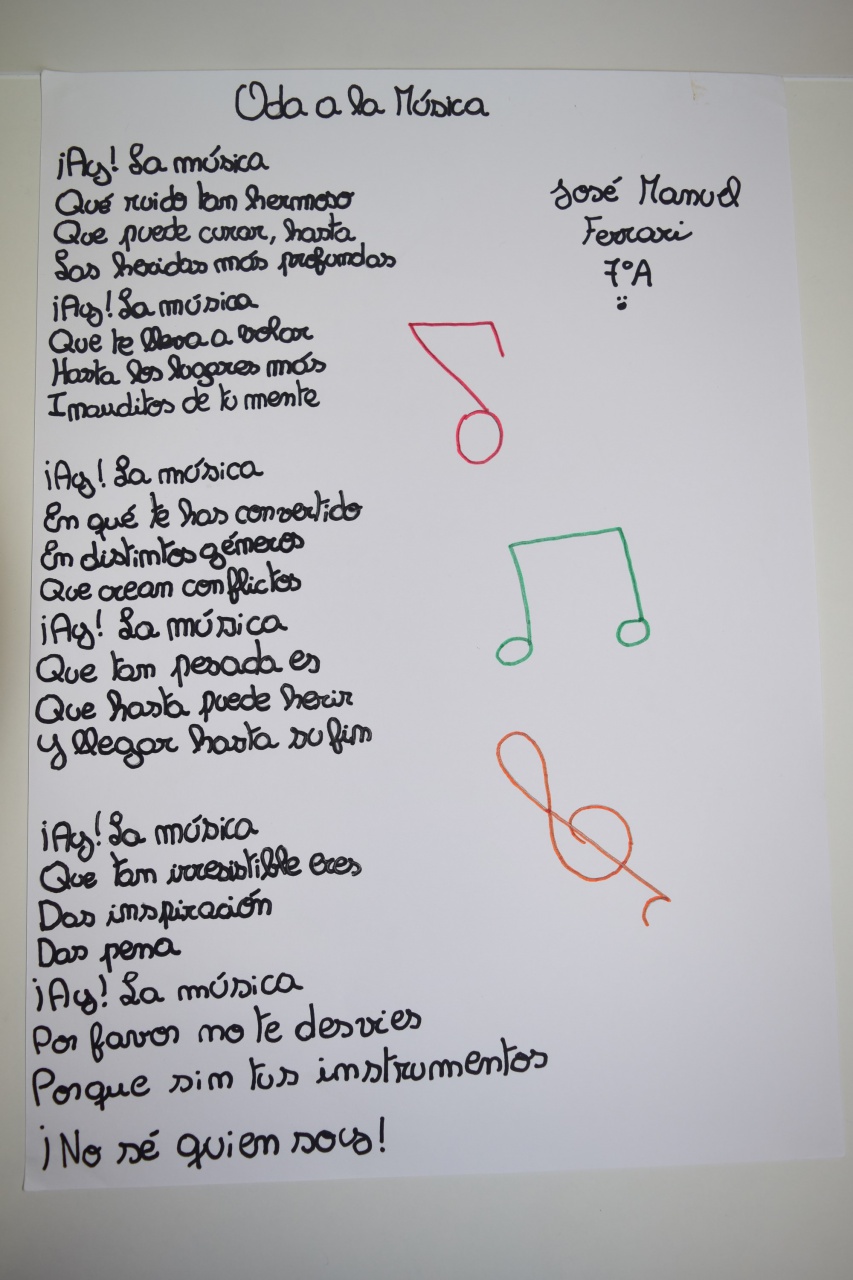 Oda a la Música
¡Ay! La música
Qué ruido tan hermoso
Que puede curar, hasta
Las heridas más profundas
¡Ay! La música
Que te lleva a volar
Hasta los lugares más
Inauditos de tu mente
José Manuel
Ferrari
7°A
¡Ay! La música
En qué te has convertido
En distintos géneros
Que crean conflictos
¡Ay! La música
Que tan pesada es
Que hasta puede herir
Y llegar hasta su fin
¡Ay! La música
Que tan irresistible eres
Das inspiración
Das pena
¡Ay! La música
Por favor no te desvies
Porque sin tus instrumentos
¡No sé quien soy!